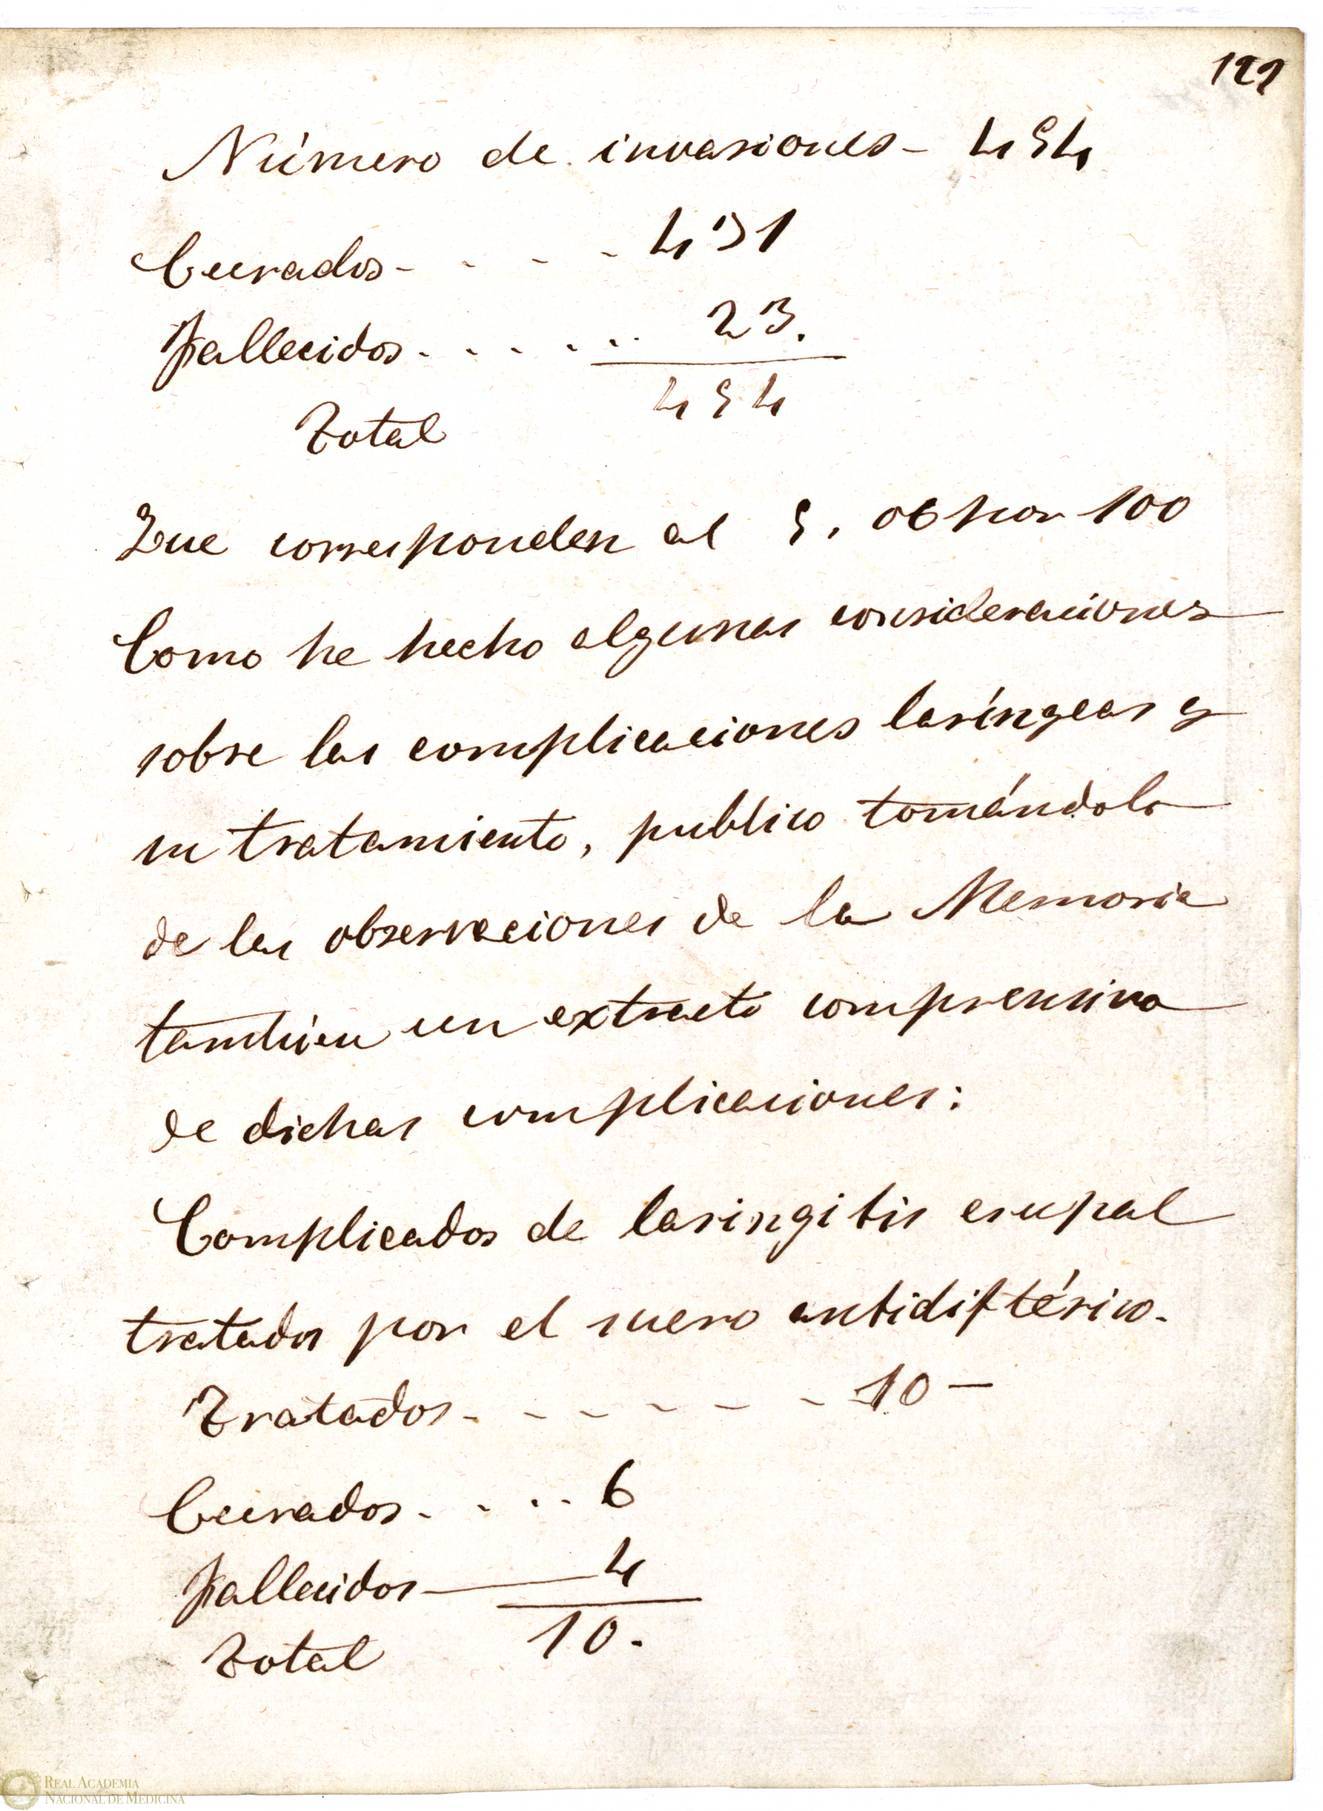 121
Número de invasiones - 454
Curados - - - - - 431
Fallecidos . . . . . . . 23.
454
Total
Que corresponden al 5, 06 por 100
Como he hecho algunas consideraciones
sobre las complicaciones laríngeas y
su tratamiento, publico tomándolo
de las observaciones de la Memoria
tambien un extracto comprensivo
de dichas complicaciones:
Complicados de laringitis crupal
tratados por el suero antidiftérico.
Tratados - - - - - - - 10 -
Curados . . . . . 6
Fallecidos - 4
Total 10.
REAL ACADEMIA
NACIONAL DE MEDICINA